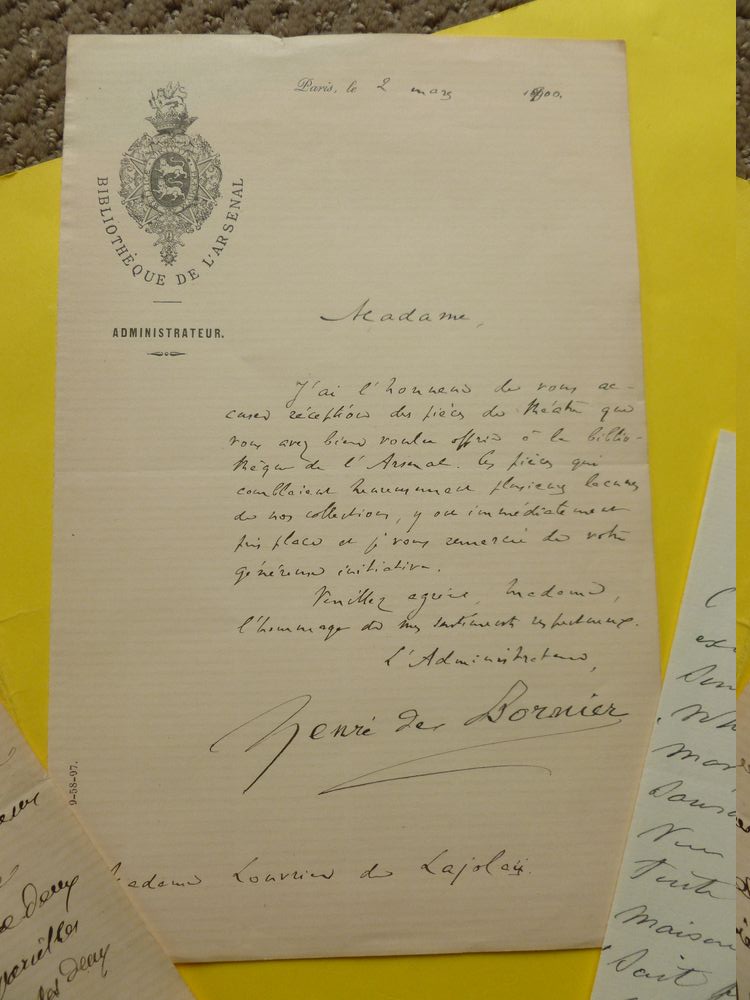 Paris, le 2 mars 1900.
BIBLIOTHÈQUE DE L'ARSENAL
ADMINISTRATEUR.
Madame,
J'ai l'honneur de vous ac-
cuser réception des pièces de théâtre que
vous avez bien voulu offrir à la biblio-
thèque de l'Arsenal. Ces pièces qui
comblaient heureusement plusieurs lacunes
de nos collections, y ont immédiatement
pris place et je vous remercie de votre
généreuse initiative.
Veuillez agréer, Madame,
l'hommage de mes sentiments respectueux.
L'Administrateur,
Henri de Bornier
9-58-97.
Madame Louvrier de Lajolais.
de deux
des deux
Vue
toute
maison
Sait